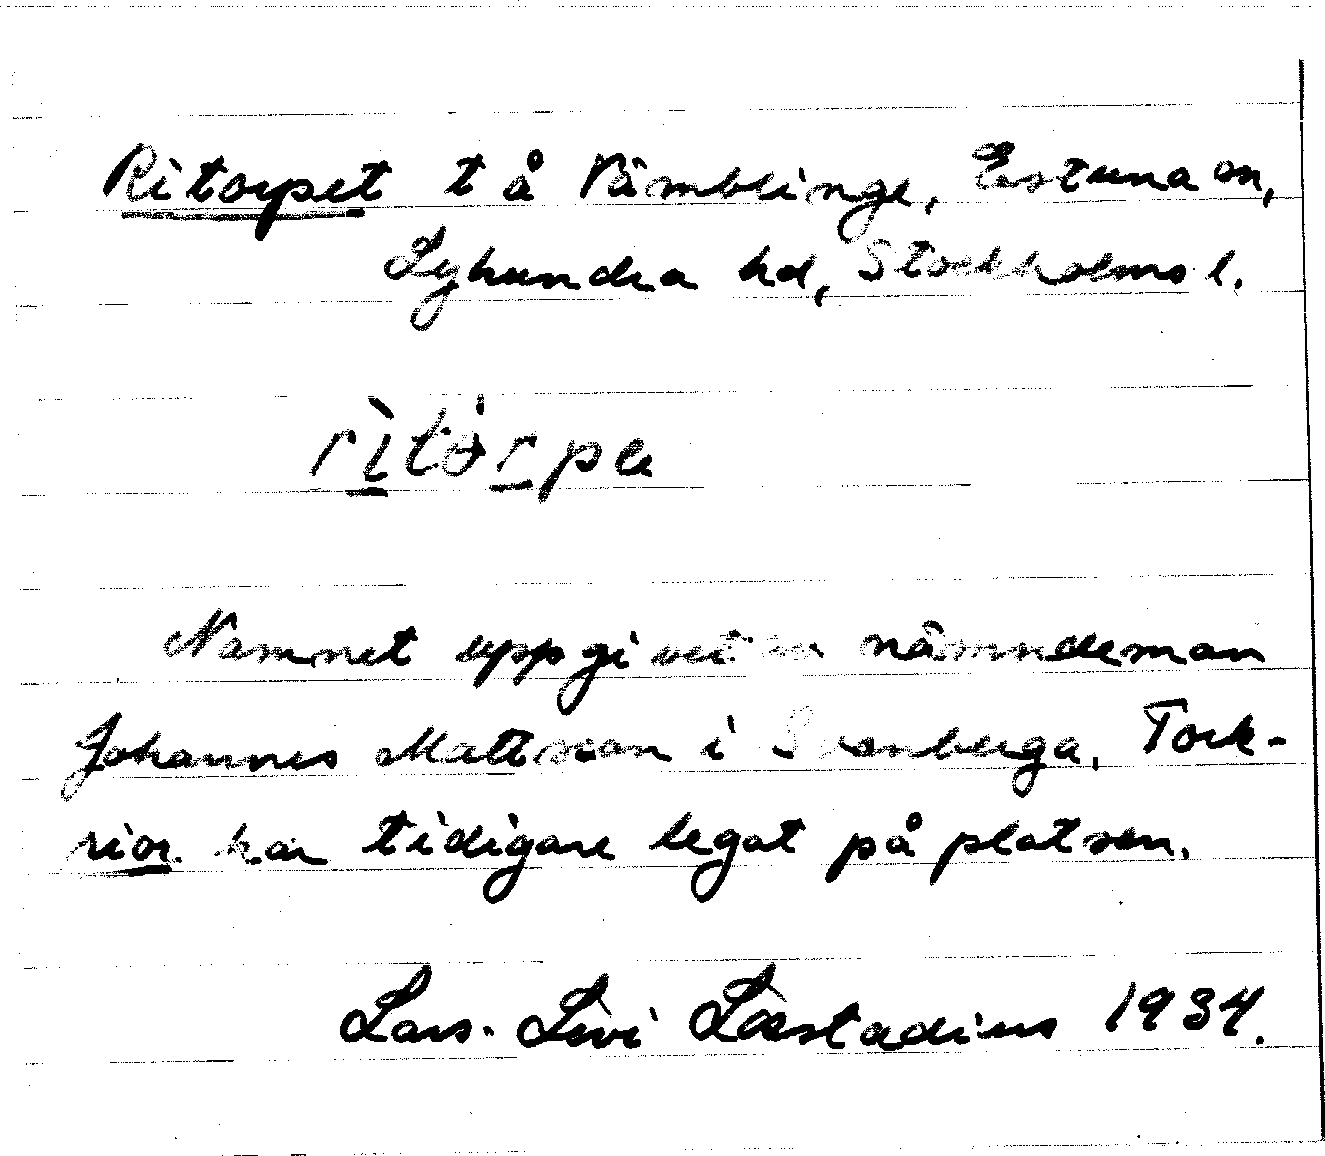 Ritorpet t å Vämblinge, Estuna sn,
Lyhundra hd, Stockholms l.
rìtórpe
Namnet uppgivet av nämndeman
Johannes Mattsson i Svanberga. Tork-
rior har tidigare legat på platsen.
Lars-Levi Læstadius 1934.